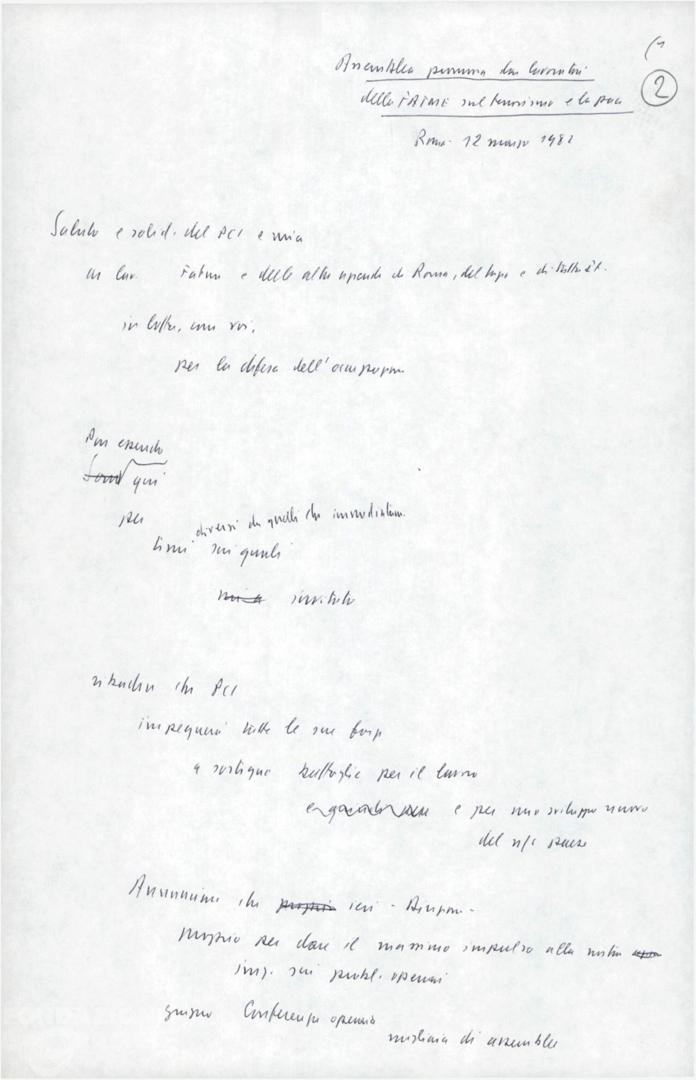 2
Assemblea promossa dai lavoratori
della FATME sul terrorismo e la pace
Roma - 12 marzo 1982
Saluto e solid. del PCI e mia
ai lav. Fatme e delle altre aziende di Roma, del Lazio e di tutta It.
in lotta, come voi,
per la difesa dell'occupazione
Pur essendo
qui
per
diversi da quelli che immediatam.
temi sui quali
invitato
ribadire che PCI
impegnerà tutte le sue forze
a sostegno battaglie per il lavoro
e per uno sviluppo nuovo
del n/s paese
Annunciare che ieri - Direzione -
proprio per dare il massimo impulso alla nostra
iniz. sui probl. operai
giugno Conferenza operaia
migliaia di assemblee